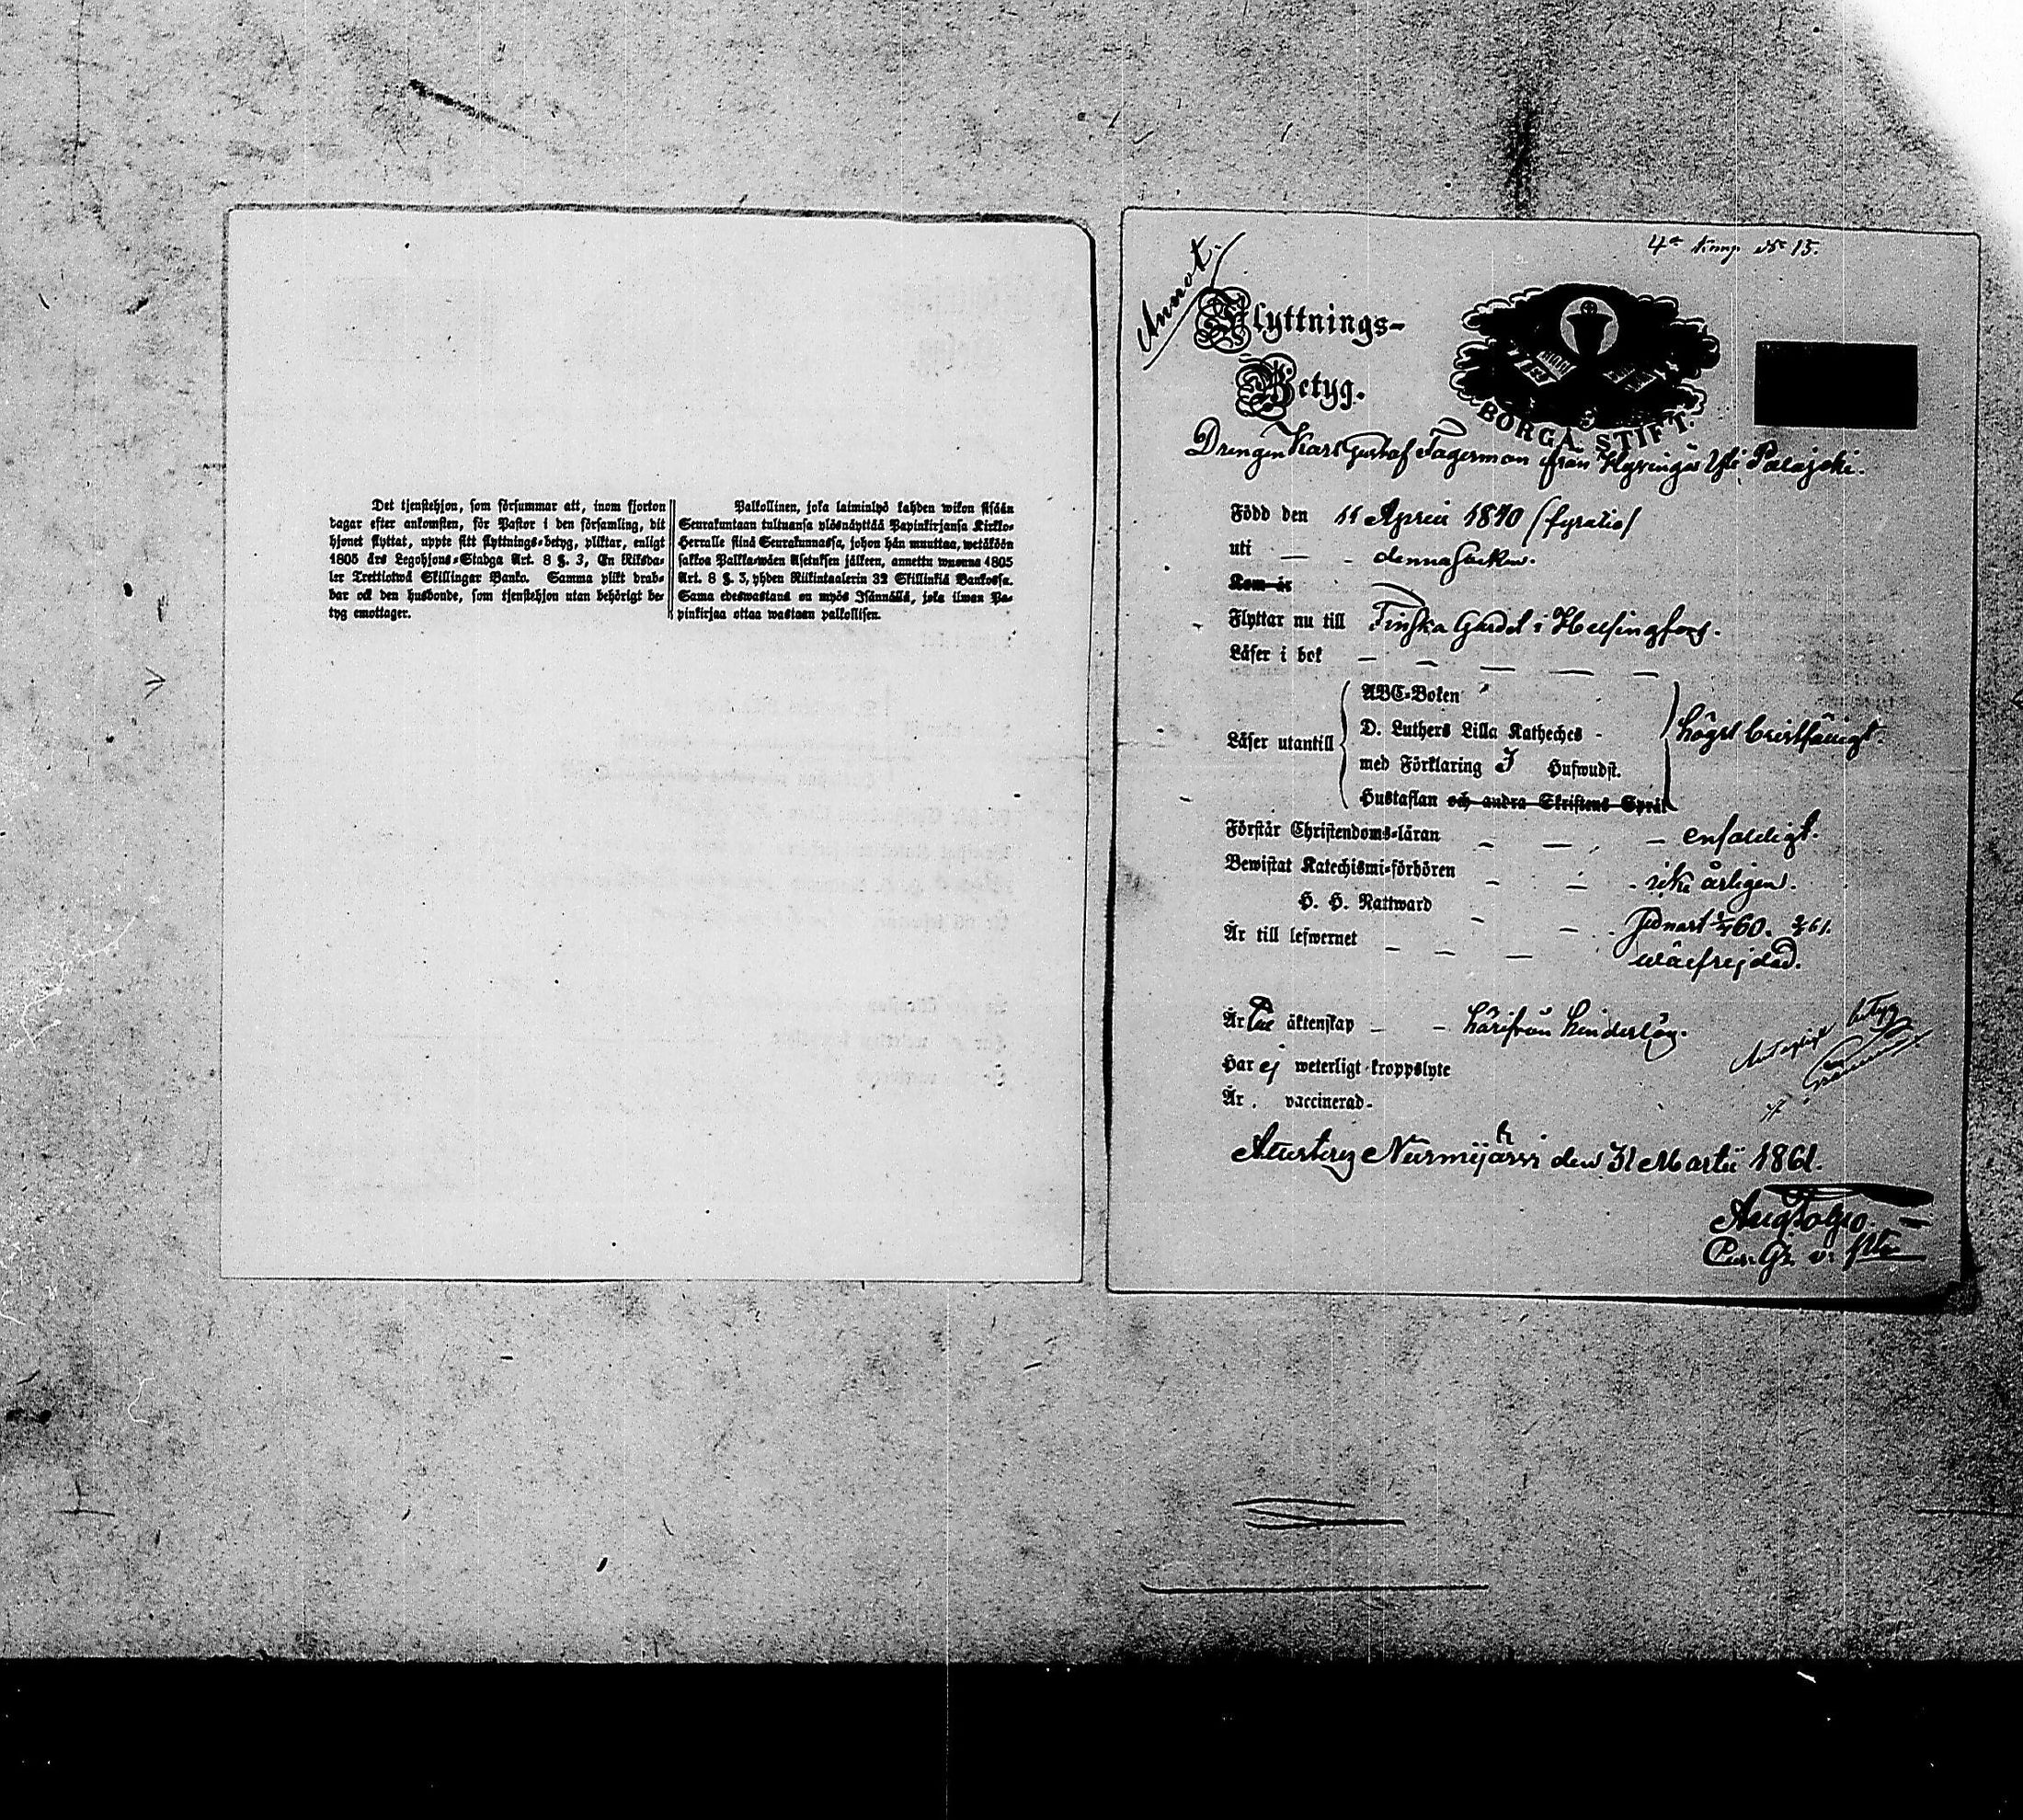 Det tjenstehjon, som försummar att, inom fjorton
dagar efter ankomsten, för Pastor i den församling, dit
hjonet flyttat, uppte sitt flyttnings-betyg, pliktar, enligt
1805 års Legohjons-Stadga Art. 8 §. 3, En Riksda-
ler Trettiotwå Skillingar Banko. Samma plikt drab-
bar ock den husbonde, som tjenstehjon utan behörigt be-
tyg emottager.
Palkollinen, joka laiminlyö kahden wikon sisään
Seurakuntaan tultuansa ylösnäyttää Papinkirjansa Kirkko-
Herralle siinä Seurakunnassa, johon hän muuttaa, wetäköön
sakkoa Palkkawäen Asetuksen jälkeen, annettu wuonna 1805
Art. 8 §. 3, yhden Riikintaalerin 32 Skillinkiä Bankossa.
Sama edeswastaus on myös Isännällä, joka ilman Pa-
pinkirjaa ottaa wastaan palkollisen.
4de Komp No 13.
Annot.
Flyttnings-
Betyg.
BORGÅ STIFT.
Drengen Karl Gustaf Fagerman från Palajoki.
Född den 11 April 1840 (fyratio)
uti — - denna Socken.
Kom år
Flyttar nu till Finska Gardet i Helsingfors.
Läser i bok — — — — —
Läser utantill
ABC-Boken
D. Luthers Lilla Katheches -
med Förklaring 3 Hufwudst.
Hustaflan och andra Skriftens Språk
högst bristfäligt.
Förstår Christendoms-läran - — - — enfaldigt.
Bewistat Katechismi-förhören - — - icke årligen.
H. H. Nattward - — - sednast 60. 61.
Är till lefwernet — — — wälfrejdad.
Är till äktenskap — — härifrån hinderlös.
Har ej weterligt kroppslyte
Är vaccinerad-
betyg
Nurmijärvi den 31 Martii 1861.